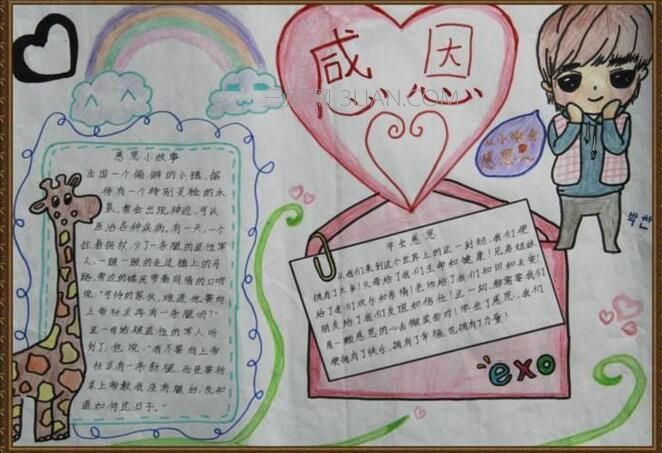 感恩
感恩小故事
法国一个偏僻的小镇，据
传有一个特别灵验的水
泉，常会出现神迹，可以
医治各种疾病。有一天，一个
拄着拐杖，少了一条腿的退伍军
人，一跛一跛的走过镇上的马
路，旁边的镇民带着同情的口吻
说："可怜的家伙，难道他要向
上帝祈求再有一条腿吗？"
这一句话被退伍的军人听
到了，他说："我不是要向上帝
祈求有一条新腿，而是要祈
求上帝教我没有腿后，也知
道如何过日子。"
学会感恩
从我们来到这个世界上的这一刻起，我们便
拥有了太多！父母给了我们生命和健康！兄弟姐妹
给了我们欢乐和亲情！老师给了我们知识和关爱！
朋友给了我们友谊和信任！这一切，都需要我们
用一颗感恩的心去微笑面对！学会了感恩，我们
便拥有了快乐，拥有了幸福，也拥有了力量！
感恩
exo
3LIAN.COM